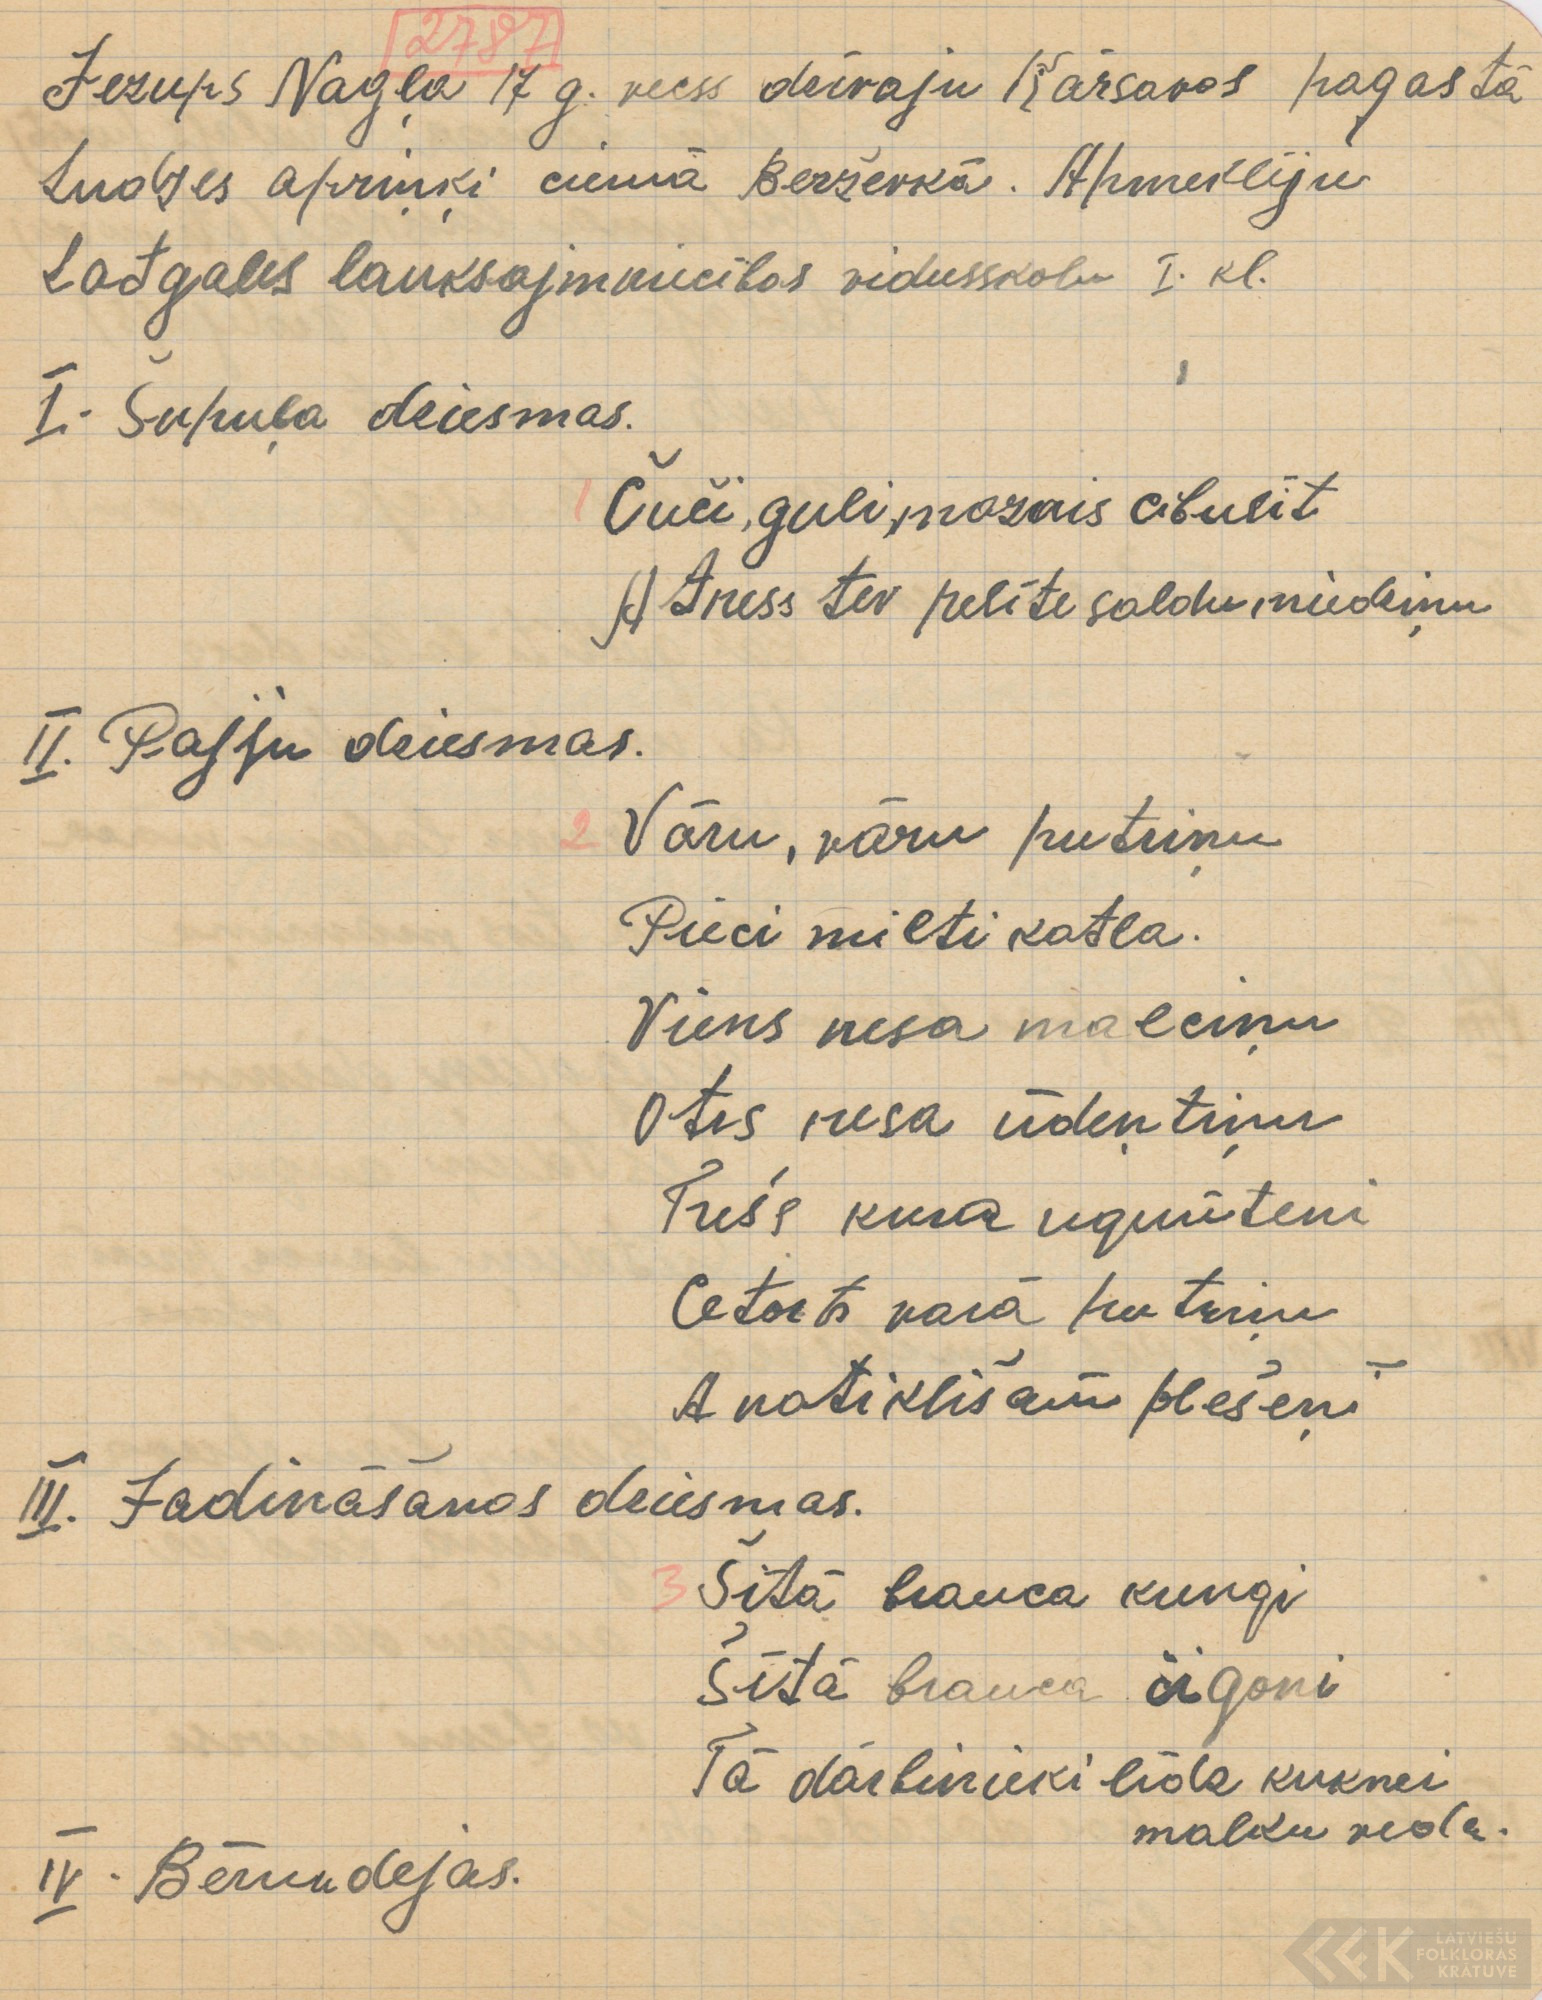 2787
Jezups Nagļa 17 g. vecs dzīvoju Kārsavas pagastā
Ludzes apriņķi ciemā Berževkā. Apmeklēju
Latgales lauksajmniecības vidusskolu I. kl.
I. Šupuļa dziesmas.
1 Čuči, guli, mozais cibulīt
Atness tev pelīte saldu miedziņu
II. Paijju dziesmas.
2 Vāru, vāru putriņu
Pieci milti katla.
Viens nesa malciņu
Otrs nesa ūdeņtiņu
Trešs kura uguņteni
Cetorts varā putriņu
A
III. Jadināšanos dziesmas.
3 Šitā brauca kungi
Šitā brauca čigoni
Tā dārbinieki līda kuknei
malku veda.
IV. Bērnu dejas.
LATVIEŠU
FOLKLORAS
KRĀTUVE